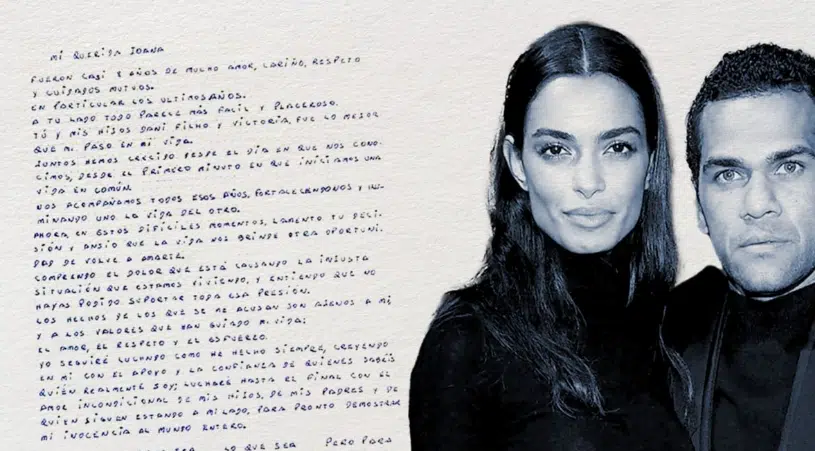 MI QUERIDA JOANA
FUERON CASI 8 AÑOS DE MUCHO AMOR, CARIÑO, RESPETO
Y CUIDADOS MUTUOS.
EN PARTICULAR LOS ULTIMOS AÑOS.
A TU LADO TODO PARECE MÁS FACIL Y PLACEROSO.
TÚ Y MIS HIJOS DANI FILHO Y VICTORIA, FUE LO MEJOR
QUE MI PASO EN MI VIDA.
JUNTOS HEMOS CRECIDO DESDE EL DÍA EN QUE NOS CONO-
CIMOS, DESDE EL PRIMERO MINUTO EN QUE INICIAMOS UNA
VIDA EN COMÚN.
NOS ACOMPAÑAMOS TODOS ESOS AÑOS. FORTALECENDONOS Y ILU-
MINANDO UNO LA VIDA DEL OTRO.
AHORA, EN ESTOS DIFÍCILES MOMENTOS, LAMENTO TU DECI-
SIÓN Y ANSIO QUE LA VIDA NOS BRINDE OTRA OPORTUNI-
DAD DE VOLVE A AMARTE.
COMPRENDO EL DOLOR QUE ESTÁ CAUSANDO LA INJUSTA
SITUACIÓN QUE ESTAMOS VIVIENDO, Y ENTIENDO QUE NO
HAYAS PODIDO SUPORTAR TODA ESA PRESIÓN.
LOS HECHOS DE LOS QUE SE ME ACUSAN SON AGENOS A MÍ,
Y A LOS VALORES QUE HAN GUIADO MI VIDA;
EL AMOR, EL RESPETO Y EL ESFUERZO.
YO SEGUIRÉ LUCHANDO COMO HE HECHO SIEMPRE, CREYENDO
EN MÍ CON EL APOYO Y LA CONFIANZA DE QUIENES SABÉIS
QUIÉN REALMENTE SOY; LUCHARÉ HASTA EL FINAL CON EL
AMOR INCONDICIONAL DE MIS HIJOS, DE MIS PADRES Y DE
QUIEN SIGUEN ESTANDO A MI LADO, PARA PRONTO DEMOSTRAR
MI INOCENCIA AL MUNDO ENTERO.
LO QUE SEA PERO PARA